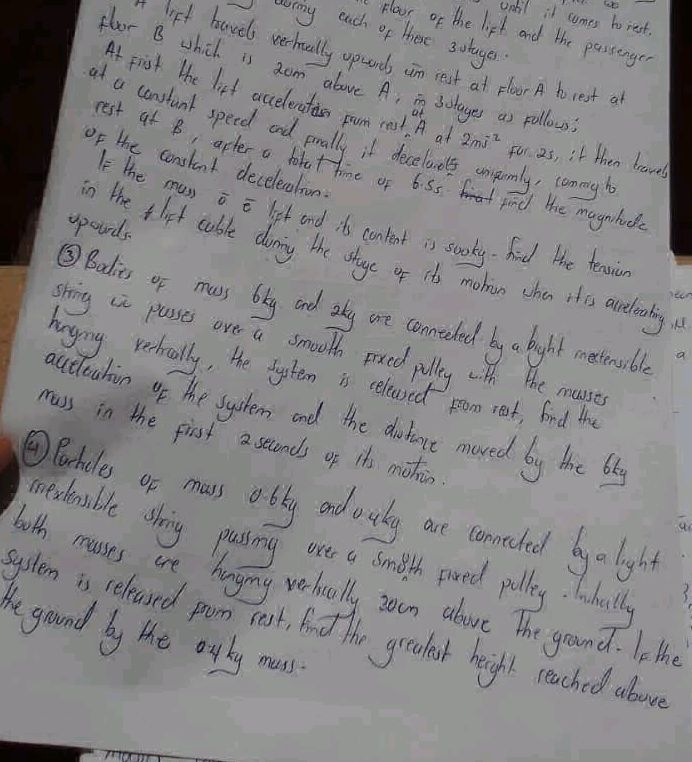 until it comes to rest.
floor of the lift and the passenger
during each of these 3 stages.
A lift travels vertically upwards from rest at floor A to rest at
floor B which is 20m above A, in 3 stages as follows;
At first the lift acceleration from rest at A at 2ms⁻² for 2s, it then travels
at a constant speed and finally it decelerates uniformly, coming to
rest at B, after a total time of 6.5s. find the magnitude
of the constant deceleration.
If the mass o̅ c̅ lift and its content is 500kg. find the tension
in the lift cable during the stage of its motion when it is accelerating
upwards.
③ Bodies of mass 6kg and 2kg are connected by a light inextensible
string passes over a smooth fixed pulley with the masses
hanging vertically, the system is released from rest, find the
acceleration of the system and the distance moved by the 6kg
mass in the first 2 seconds of its motion.
④ Particles of mass 0.6kg and 0.4kg are connected by a light
inextensible string passing over a smooth fixed pulley. Initially
both masses are hanging vertically 30cm above the ground. If the
system is released from rest, find the greatest height reached above
the ground by the 0.4kg mass.